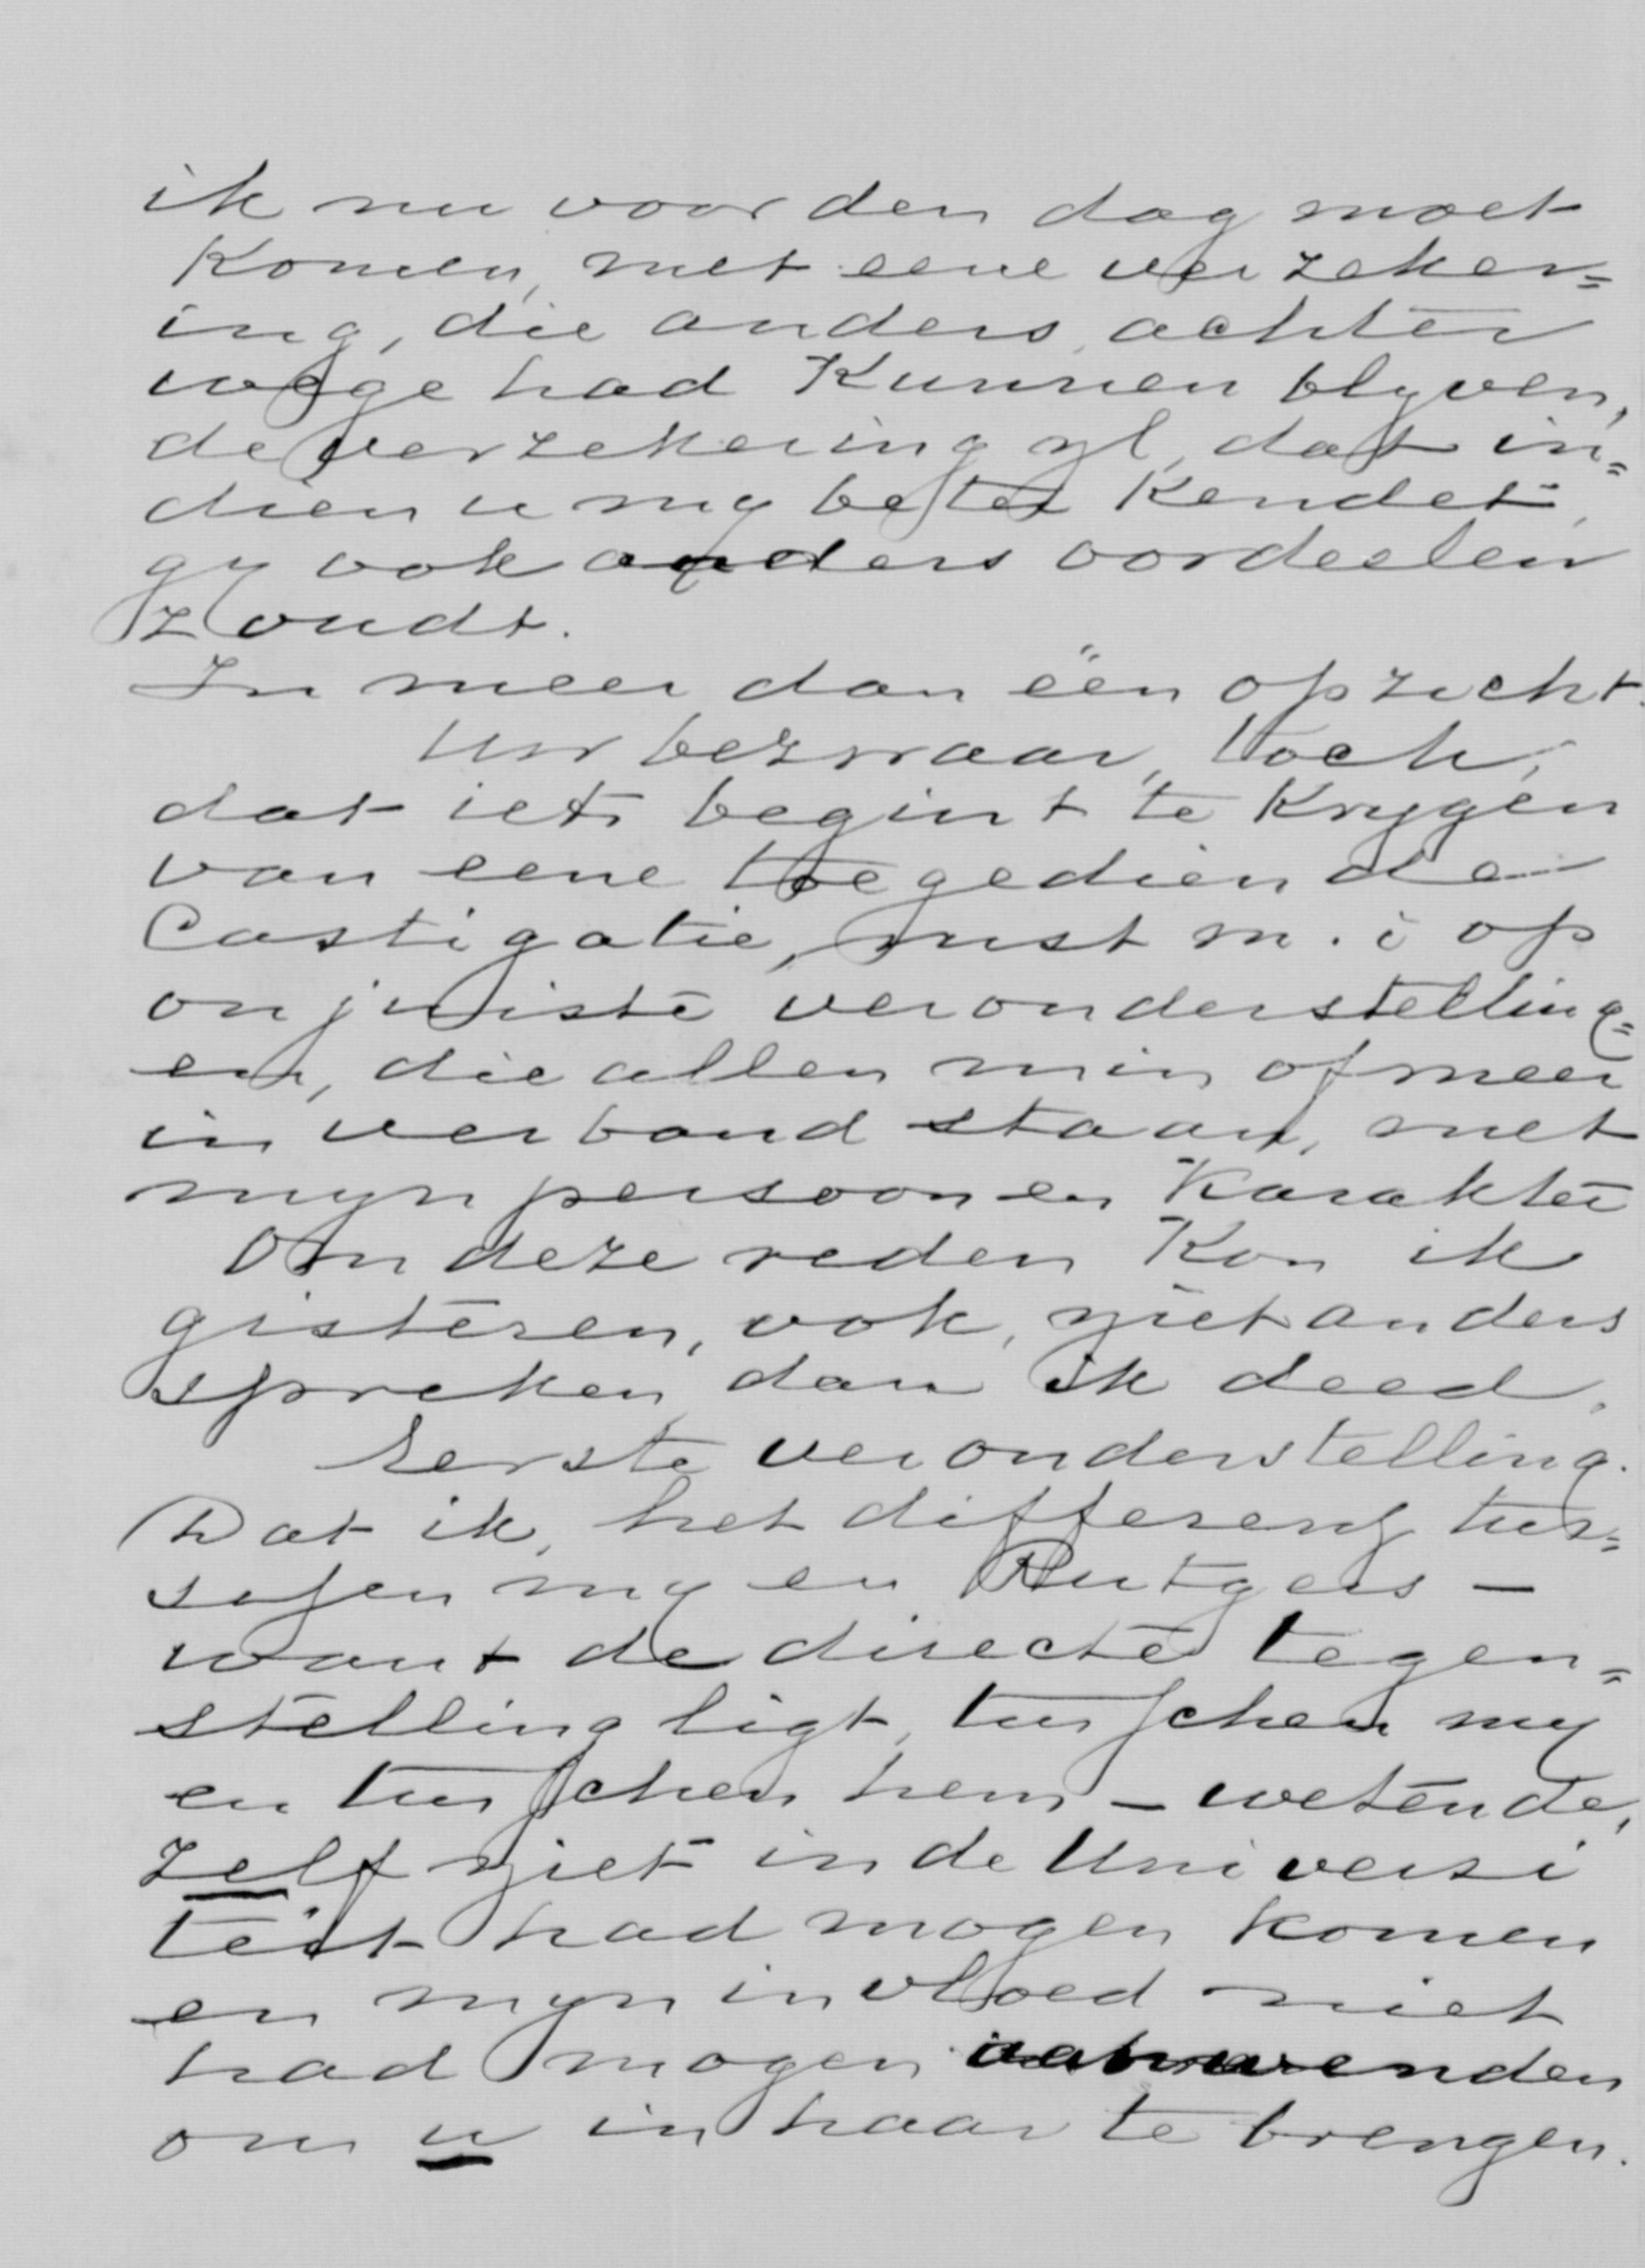 ik nu voor den dag moet
komen, met eene verzeker=
ing, die anders achter
wege had kunnen blyven,
de verzekering nl, dat in=
dien u my beter kendet,
gy ook anders oordeelen
zoudt.
In meer dan één opzicht.
Uw bezwaar, toch,
dat iets begint te krygen
van eene toegediende
Castigatie, rust m. i op
onjuiste veronderstelling=
en, die allen min of meer
in verband staan, met
myn persoon en karakter
Om deze reden kon ik
gisteren, ook, niet anders
spreken dan ik deed.
Eerste veronderstelling.
Dat ik, het differenz tus=
schen my en Rutgers —
want de directe tegen=
stelling ligt, tusschen my
en tusschen hem — wetende,
zelf niet in de Universi
teit had mogen komen
en myn invloed niet
had mogen aanwenden
om u in haar te brengen.